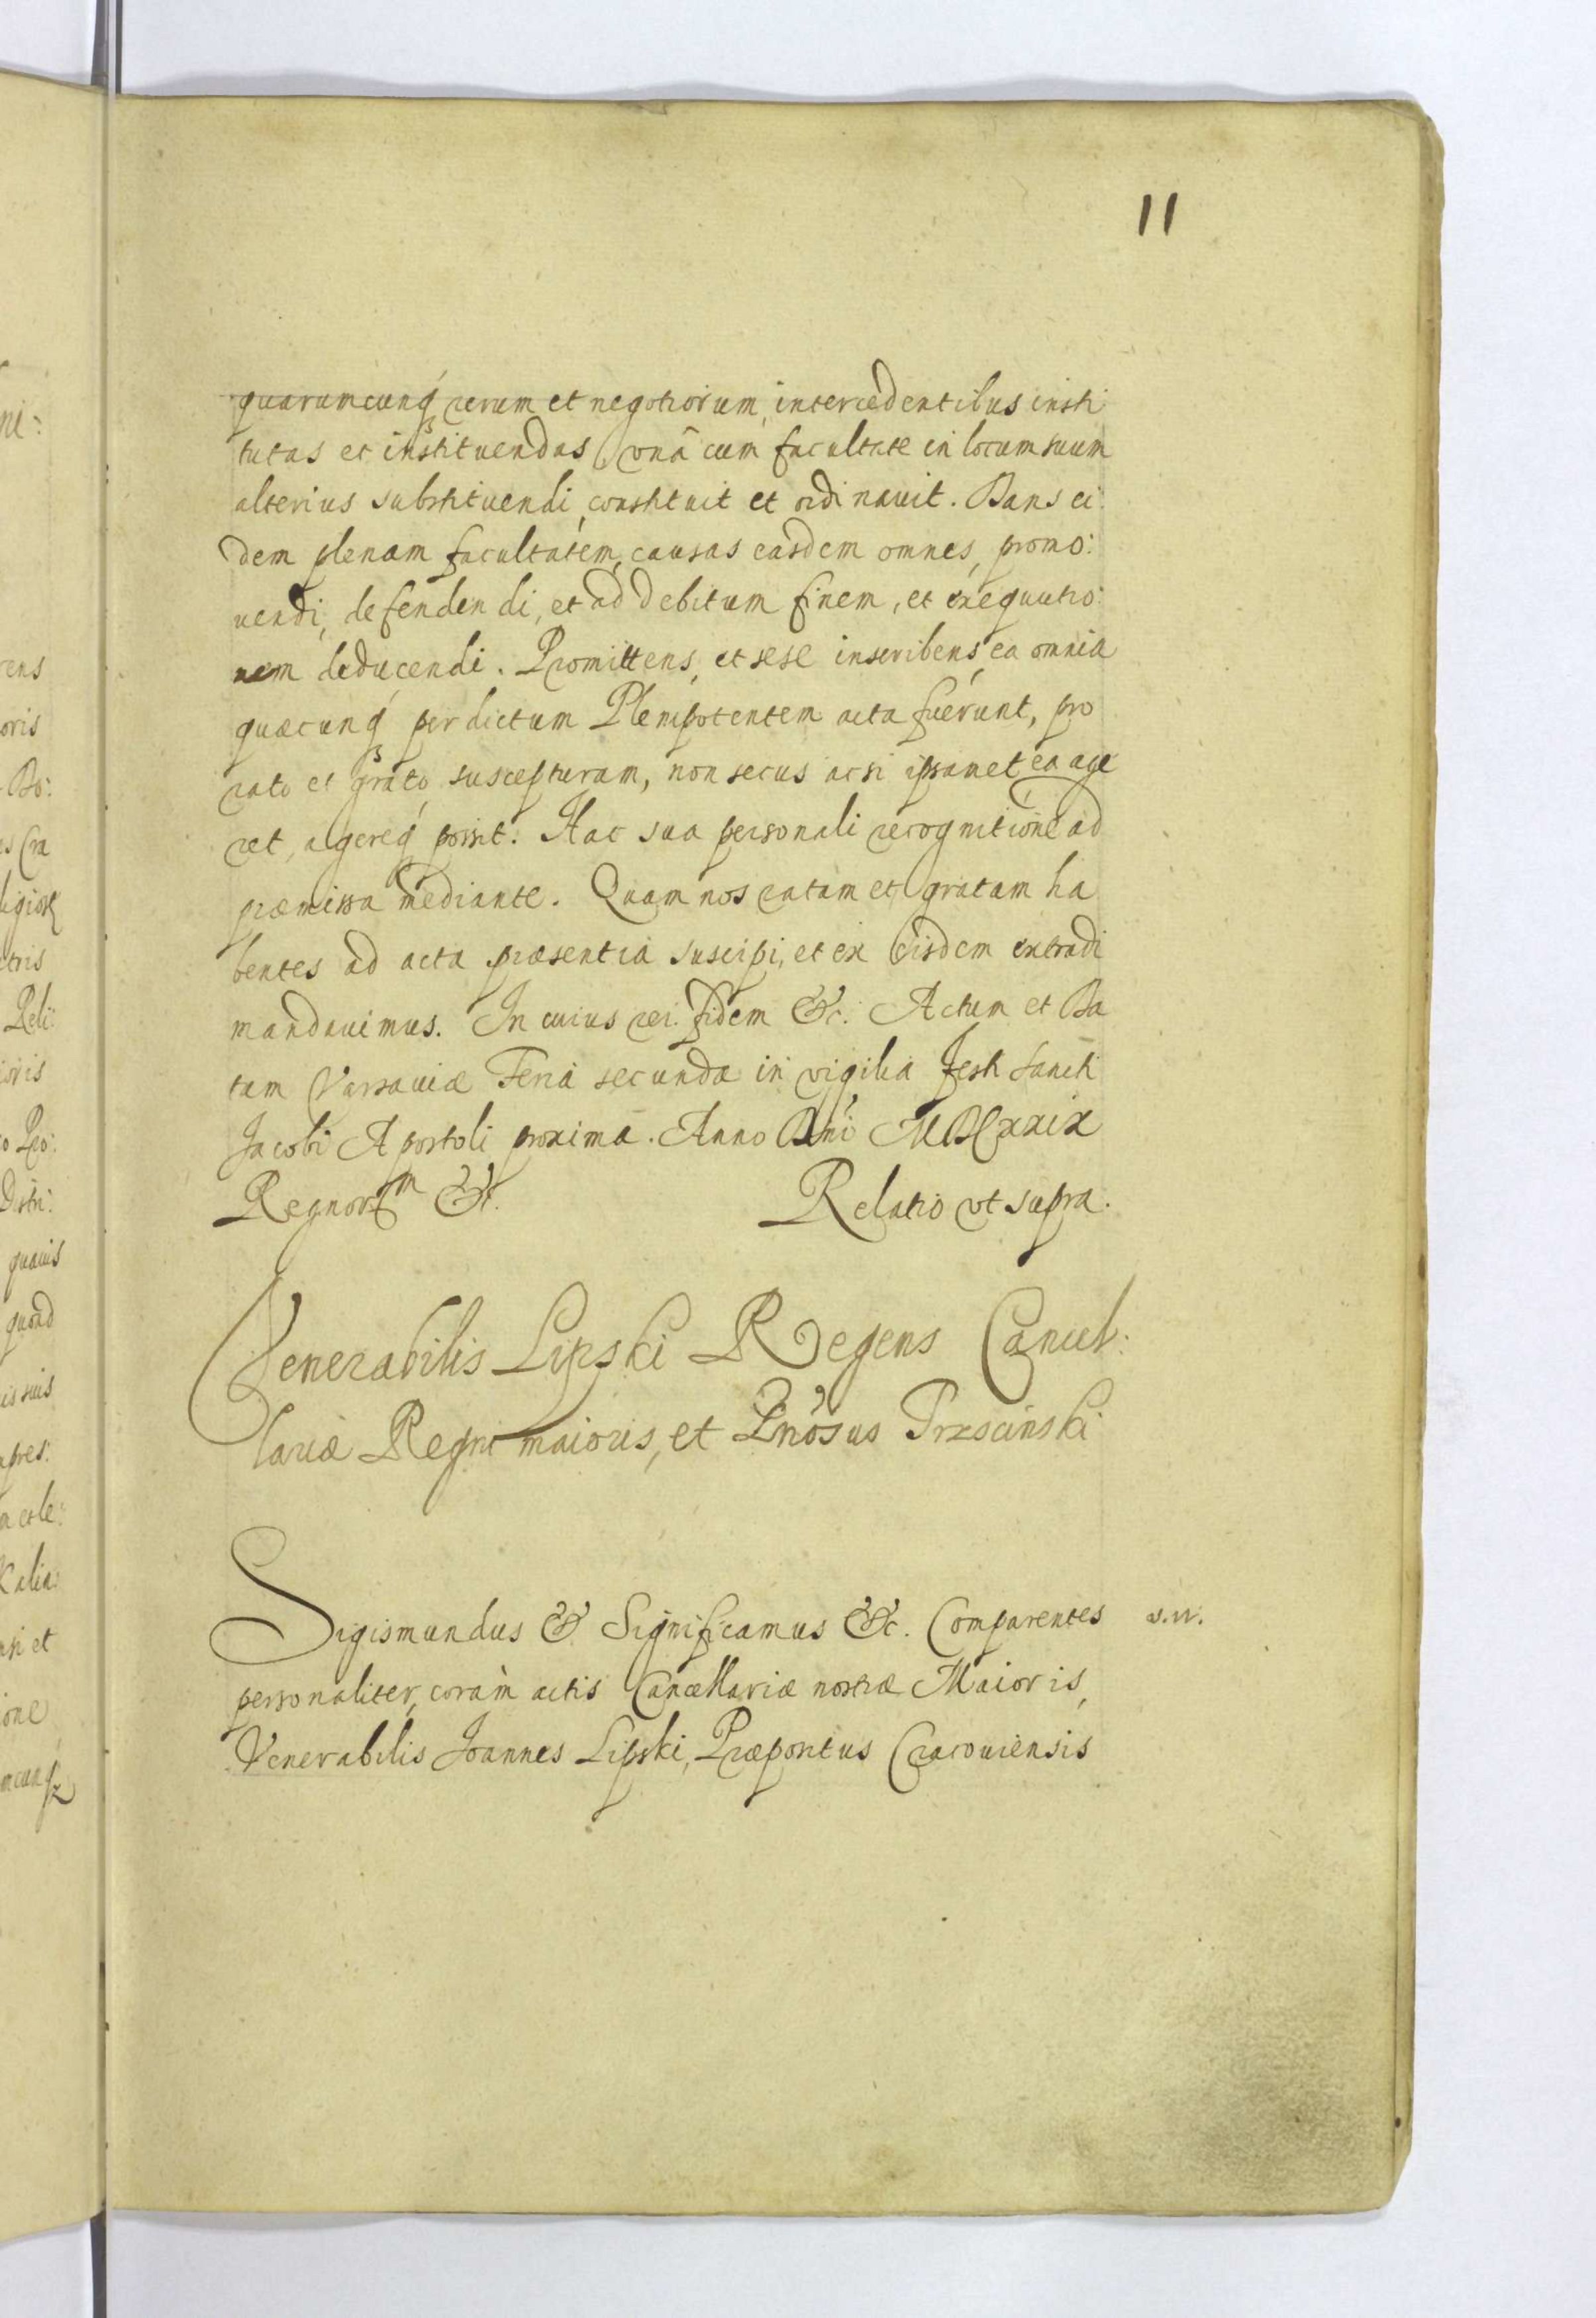 11
quarumcunq₃ rerum et negotiorum, intercedentibus insti
tutas et instituendas, vnâ cum facultate in locum suum
alterius substituendi, constituit et ordinauit. Dans ei:
dem plenam facultatem, causas easdem omnes, promo:
uendi, defendendi, et ad debitum finem, et exequutio:
nem deducendi. Promittens, et sese inscribens ea omnia
quæcunq₃ per dictum Plenipotentem acta fuerunt, pro
rato et grato suscepturam, non secus acsi ipsamet ea age
ret, agereq₃ possit. Hac sua personali recognitione ad
præmissa mediante. Quam nos ratam et gratam ha
bentes ad acta præsentia suscipi, et ex eisdem extradi
mandauimus. In cuius rei fidem &c. Actum et Da
tum Varsauiæ Feria secunda in vigilia festi Sancti
Jacobi Apostoli proxima. Anno Dni MDCxxix
Regnorm &c. Relatio vt supra.
Venerabilis Lipski Regens Cancel:
lariæ Regni maioris, et Gnosus Trzscinski
Sigismundus &c Significamus &c. Comparentes
personaliter, coram actis Cancellariæ nostræ Maioris,
Venerabilis Joannes Lipski, Præpositus Cracouiensis
ni:
rens
oris
Bo:
s Cra
tris
Reli:
ioris
o Pro:
Distri:
quauis
quoad
is suis
apres:
a et le:
Kalia:
nsi et
ione
mcunq₃